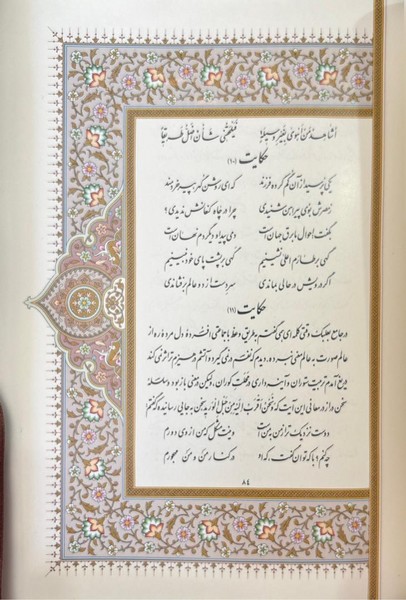 أُشاهِدُ مَنْ أَهْوىٰ بِغَیْرِ وَسیلَةٍ فَیَلْحَقُنی شَأْنٌ أَضَلُّ طَریقاً
حکایت
(۱۰)
یکی پرسید از آن گم کرده فرزند که ای روشن گهر پیر خردمند
ز مصرش بوی پیراهن شنیدی چرا در چاه کنعانش ندیدی؟
بگفت احوال ما برق جهان است دمی پیدا و دیگر دم نهان است
گهی بر طارم اعلی نشینیم گهی بر پشت پای خود نبینیم
اگر درویش در حالی بماندی سر و دست از دو عالم برفشاندی
حکایت
(۱۱)
در جامع بعلبک وقتی کلمه‌ای می‌گفتم به طریق وعظ با جماعتی افسرده دل مرده ره از
عالم صورت به عالم معنی نبرده، دیدم که نفسم در نمی‌گیرد و آتشم در هیزم تر اثر نمی‌کند
دریغ آمدم تربیت ستوران و آینه‌داری در محلّت کوران، ولیکن در معنی باز بود و سلسله
سخن دراز در معانی این آیت که نَحْنُ أَقْرَبُ إِلَیْهِ مِنْ حَبْلِ الْوَریدِ سخن به جایی رسانیده که گفتم
دوست نزدیک‌تر از من به من است وینت مشکل که من از وی دورم
چه کنم؟ با که توان گفت، که او در کنار من و من مهجورم
۸۴